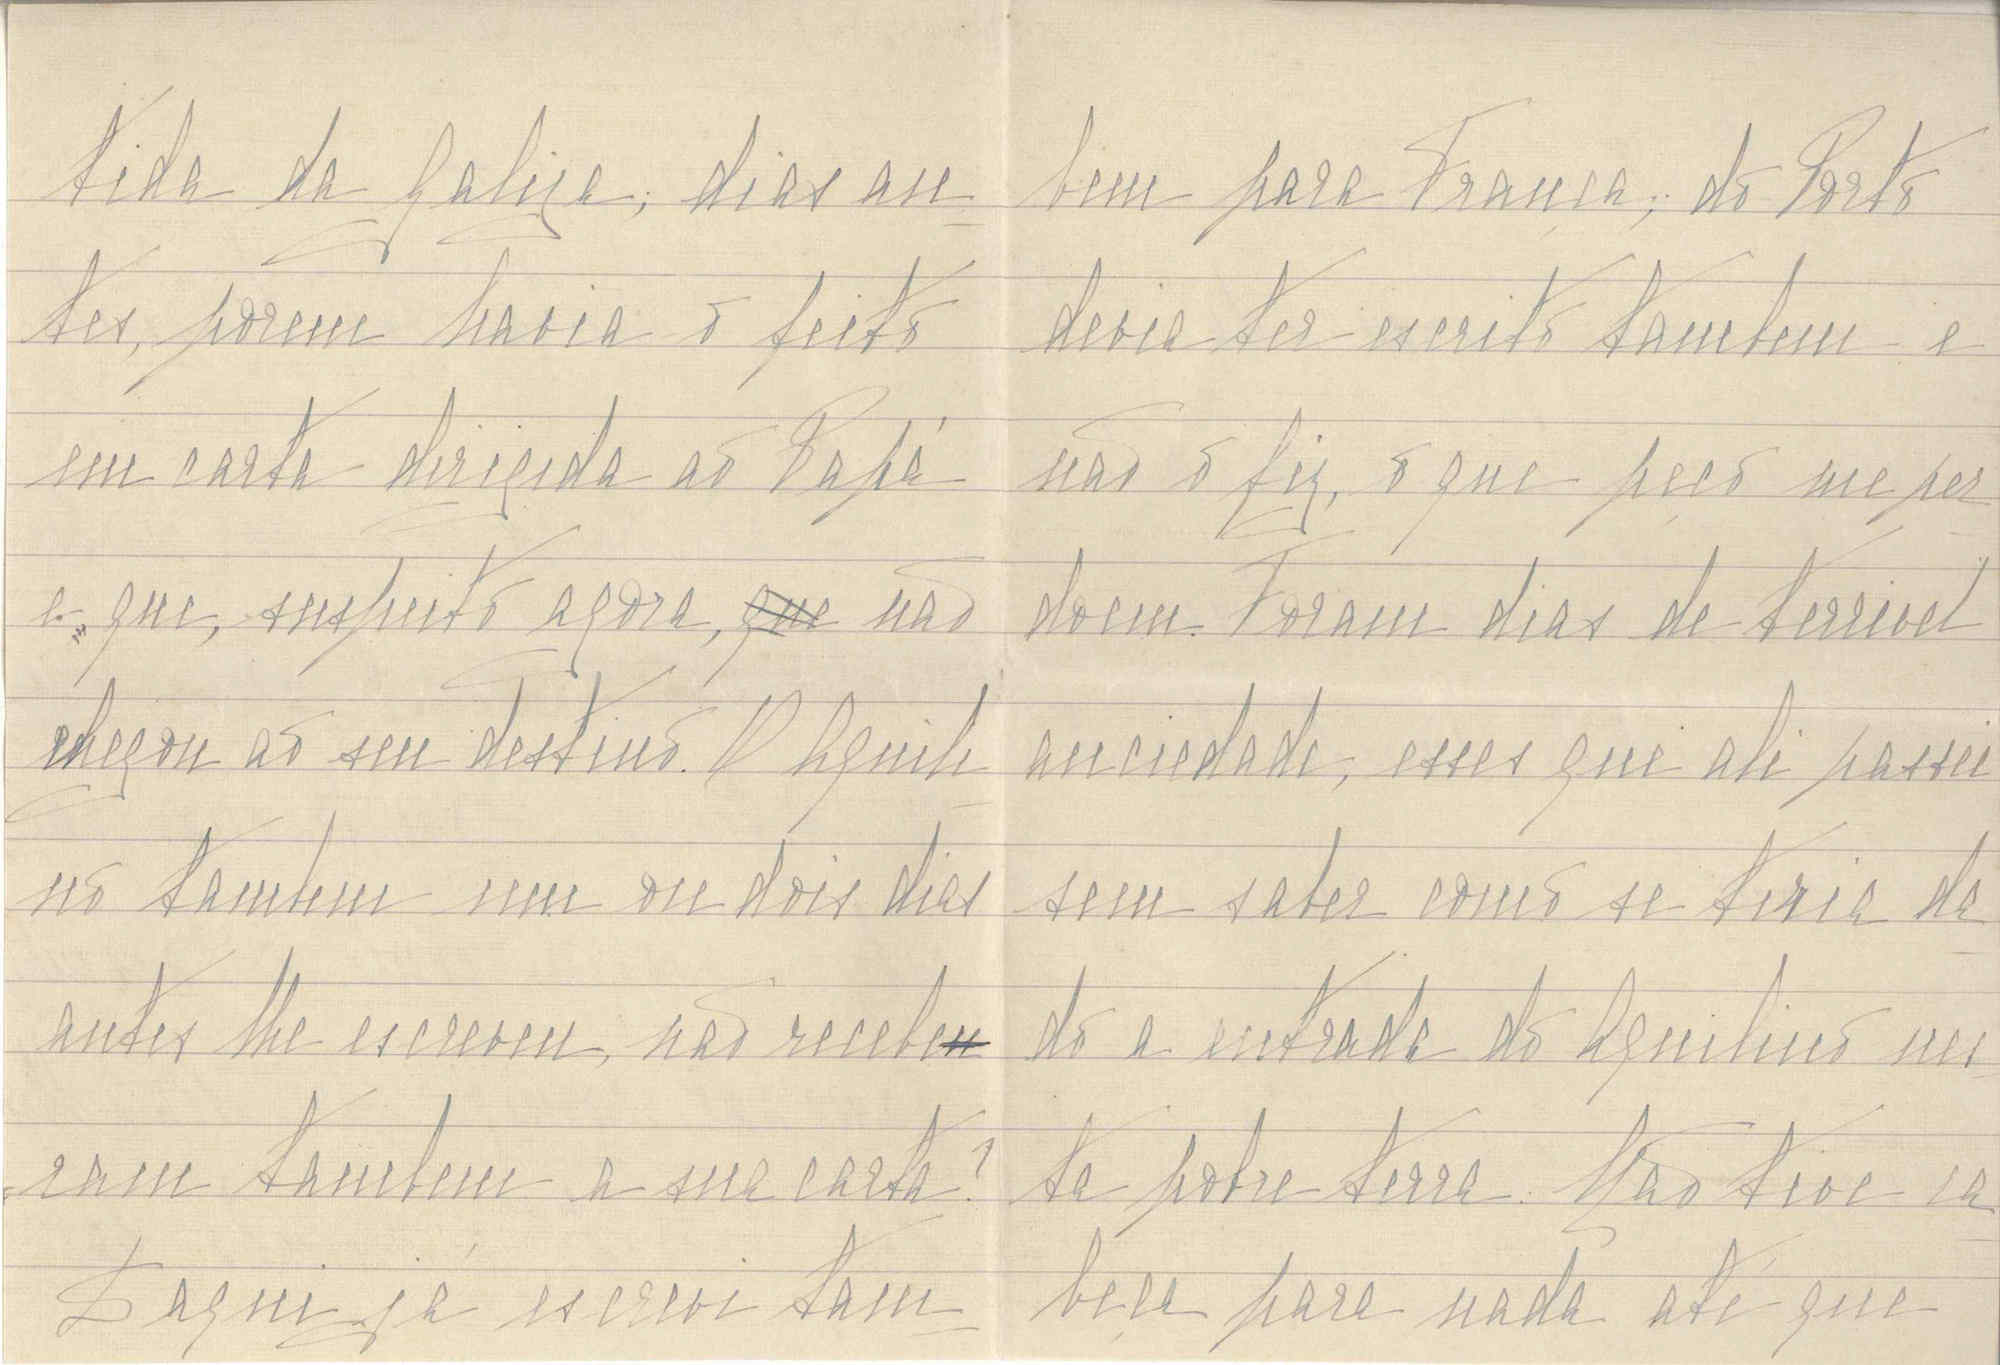 tida da Galiza; dias an-
tes, porem havia o feito
em carta dirigida ao Papá
e que, suspeito agora, que não
chegou ao seu destino. O Aquili-
no tambem um ou dois dias
antes lhe escreveu, não recebe
ram tambem a sua carta?
Daqui já escrevi tam-
bem para França; do Porto
devia ter escrito tambem e
não o fiz, o que peço me per-
doem. Foram dias de terrivel
anciedade, esses que ali passei
sem saber como se teria da-
do a entrada do Aquilino nes-
ta pobre terra. Não tive ca-
beça para nada até que